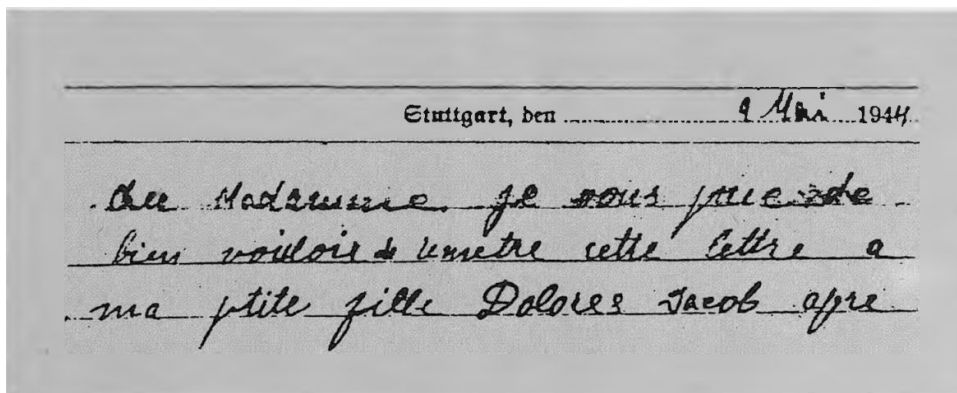 Stuttgart, den 9 Mai 1944
Madamme. je vous prie de
bien vouloir de remetre cette lettre a
ma ptite fille Dolores Jacob apre